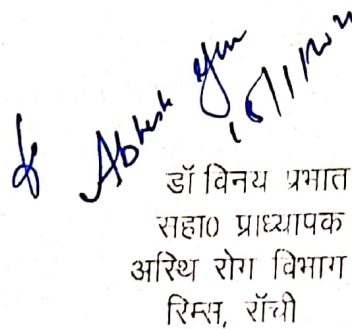 Abhish
डॉ विनय प्रभात
सहा0 प्राध्यापक
अस्थि रोग विभाग
रिम्स, राँची